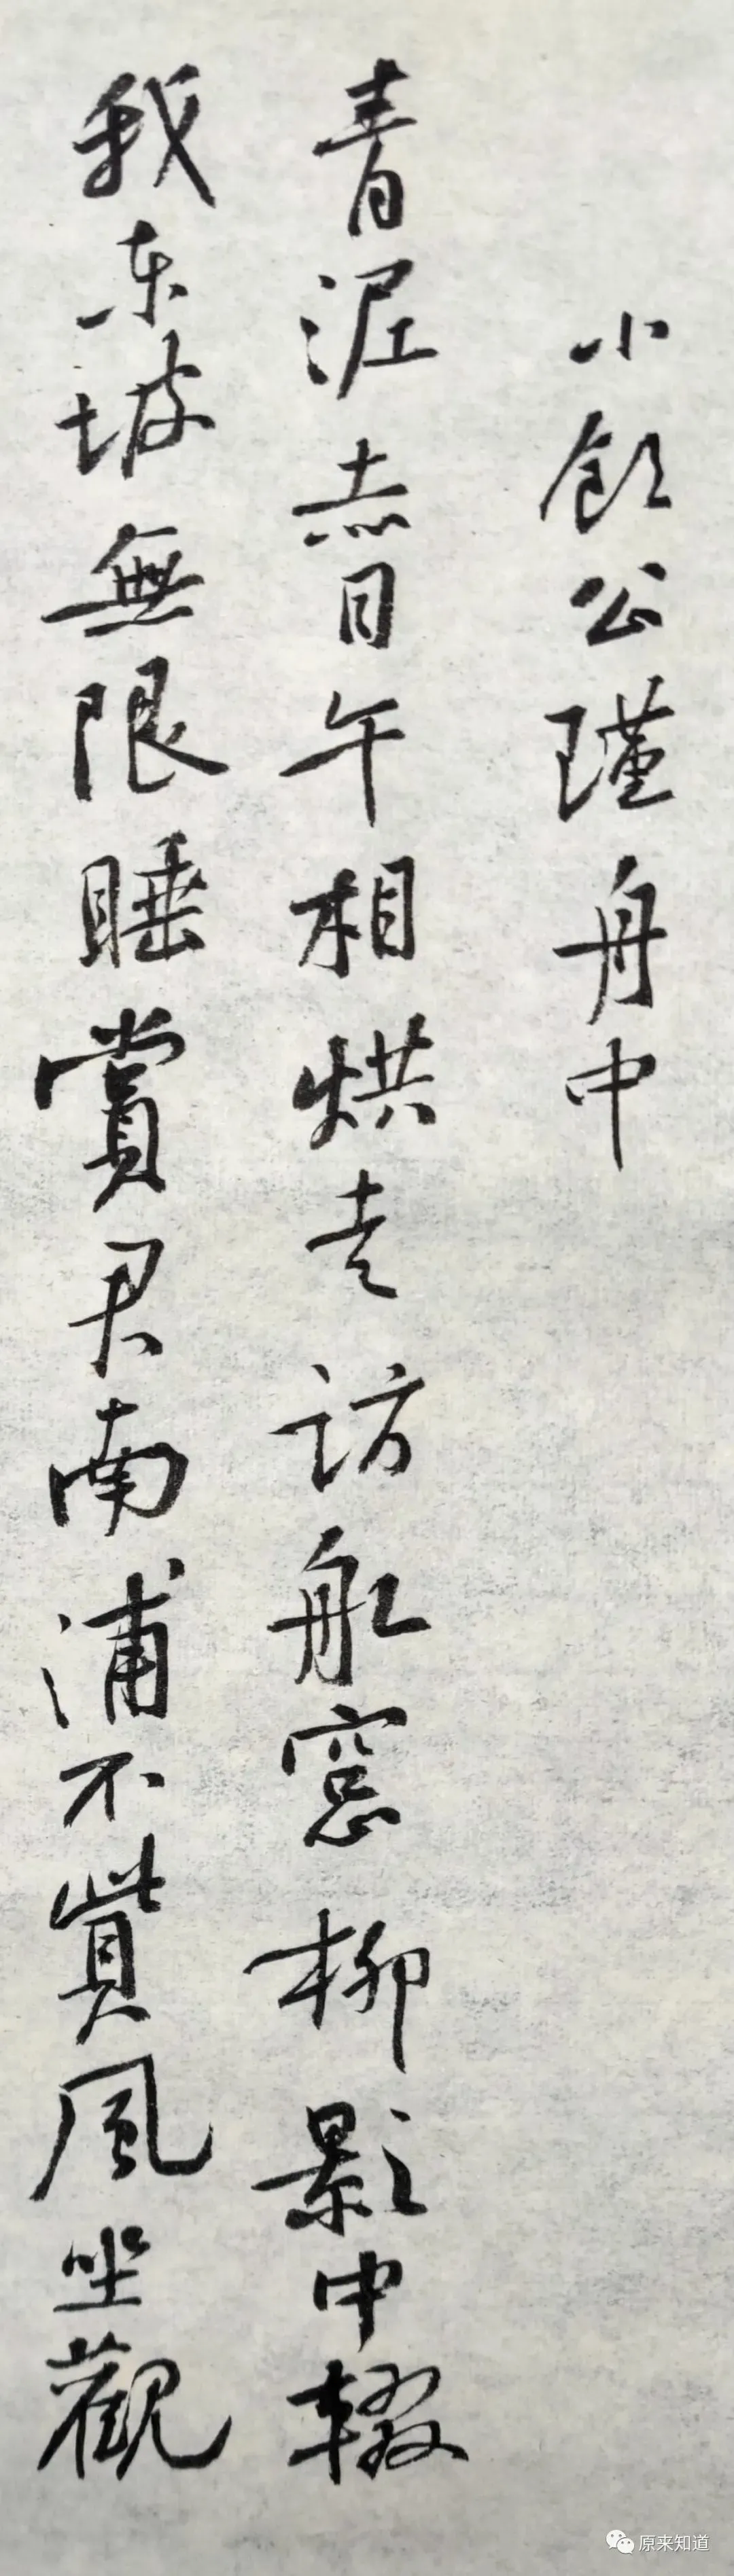 小飲公瑾舟中
青泥赤日午相烘走訪船窓柳影中輟
我東坡無限睡賞君南浦不貲風坐觀
原来知道